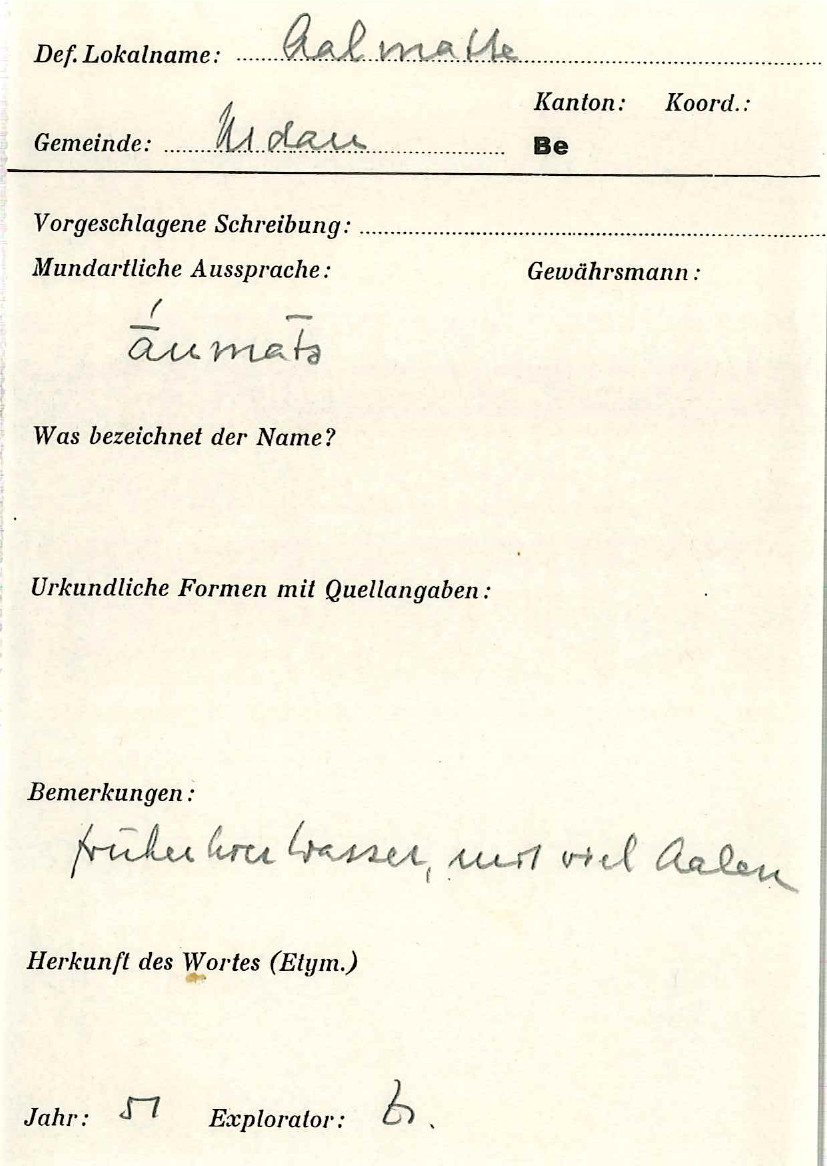 Def. Lokalname: Aalmatte
Kanton: Koord.:
Gemeinde: Nidau Be
Vorgeschlagene Schreibung:
Mundartliche Aussprache: Gewährsmann:
Was bezeichnet der Name?
Urkundliche Formen mit Quellangaben:
Bemerkungen:
früher hier Wasser, mit viel Aalen
Herkunft des Wortes (Etym.)
Jahr: 51 Explorator: